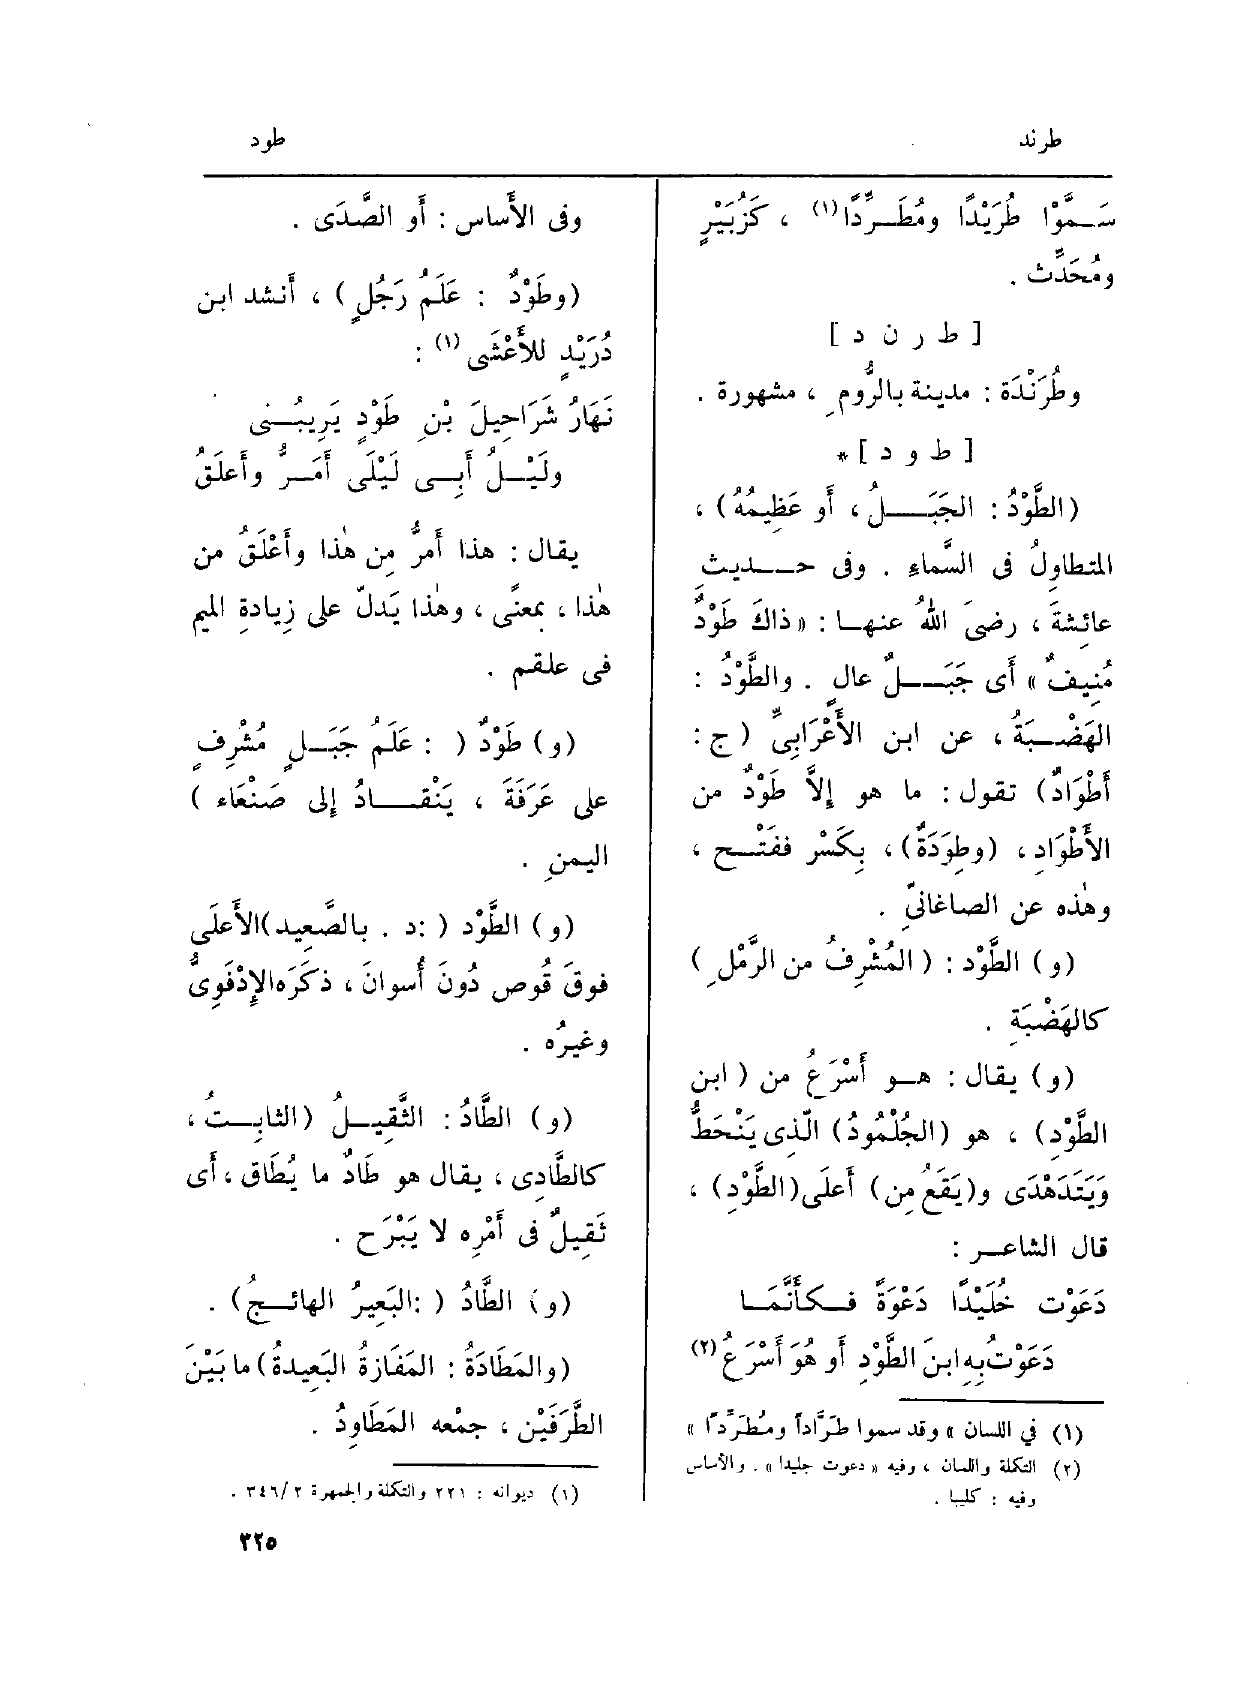 طرند
طود
سَمَّوْا طُرَيْدًا ومُطَرِّدًا(١) ، كَزُبَيْرٍ
ومُحَدِّث .
[ ط ر ن د ]
وطُرَنْدَة : مدينة بالرُّومِ ، مشهورة .
[ ط و د ] *
(الطَّوْدُ : الجَبَلُ ، أو عَظِيمُهُ) ،
المتطاوِلُ فى السَّماءِ . وفى حديث
عائِشَةَ ، رضىَ اللهُ عنها : « ذاكَ طَوْدٌ
مُنِيفٌ » أى جَبَلٌ عالٍ . والطَّوْدُ :
الهَضْبَةُ ، عن ابن الأَعْرَابِىِّ ( ج :
أَطْوَادٌ) تقول : ما هو إِلاَّ طَوْدٌ من
الأَطْوَادِ ، (وطِوَدَةٌ) ، بِكَسْر ففَتْح ،
وهٰذه عن الصاغانىّ .
(و) الطَّوْد : ( المُشْرِفُ من الرَّمْلِ )
كالهَضْبَةِ .
(و) يقال : هو أَسْرَعُ من ( ابن
الطَّوْدِ) ، هو (الجُلْمُودُ) الّذِى يَنْحَطُّ
وَيَتَدَهْدَى و(يَقَعُ مِن) أَعلَى (الطَّوْدِ) ،
قال الشاعر :
دَعَوْت خُلَيْدًا دَعْوَةً فكأَنَّمَا
دَعَوْتُ بِهِ ابنَ الطَّوْدِ أو هُوَ أَسْرَعُ(٢)
(١) في اللسان « وقد سموا طَرَّاداً ومُطَرِّداً »
(٢) التكلة واللسان ، وفيه « دعوت جليدا » . والأساس
وفيه : كليبا .
وفى الأَساس : أو الصَّدَى .
(وطَوْدٌ : عَلَمُ رَجُلٍ ) ، أَنشد ابن
دُرَيْدٍ للأَعْشَى (١) :
نَهَارُ شَرَاحِيلَ بْنِ طَوْدٍ يَرِيبُنى
ولَيْلُ أَبِى لَيْلَى أَمَرُّ وأَعلَقُ
يقال : هذا أَمرُّ مِن هٰذا وأَعْلَقُ من
هٰذا ، بمعنًى ، وهٰذا يَدلّ على زِيادةِ الميم
فى علقم .
(و) طَوْدٌ ( : عَلَمُ جَبَلٍ مُشْرِفٍ
على عَرَفَةَ ، يَنْقَادُ إِلى صَنْعَاء )
اليمنِ .
(و) الطَّوْد ( :د . بالصَّعِيد)الأَعلَى
فوقَ قُوص دُونَ أُسوانَ ، ذكَرَه الإِدْفَوِىُّ
وغيرُه .
(و) الطَّادُ : الثَّقِيلُ (الثابِتُ ،
كالطَّادِى ، يقال هو طَادٌ ما يُطَاق ، أى
ثَقِيلٌ فى أَمْرِه لا يَبْرَح .
(و) الطَّادُ ( :البَعِيرُ الهائجُ) .
(والمَطَادَةُ : المَفَازةُ البَعِيدةُ) ما بَيْنَ
الطَّرَفَيْن ، جمْعه المَطَاوِدُ .
(١) ديوانه : ٢٢١ والتكلة والجمهرة ٣٤٦/٢ .
٣٢٥